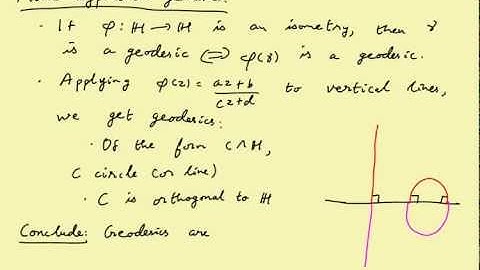 · If φ: ℍ → ℍ is an isometry, then γ
is a geodesic ⟺ φ(γ) is a geodesic.
· Applying φ(z) = az+b / cz+d to vertical lines,
we get geodesics:
· Of the form C∩ℍ,
C circle (or line)
· C is orthogonal to ℍ
Conclude: Geodesics are